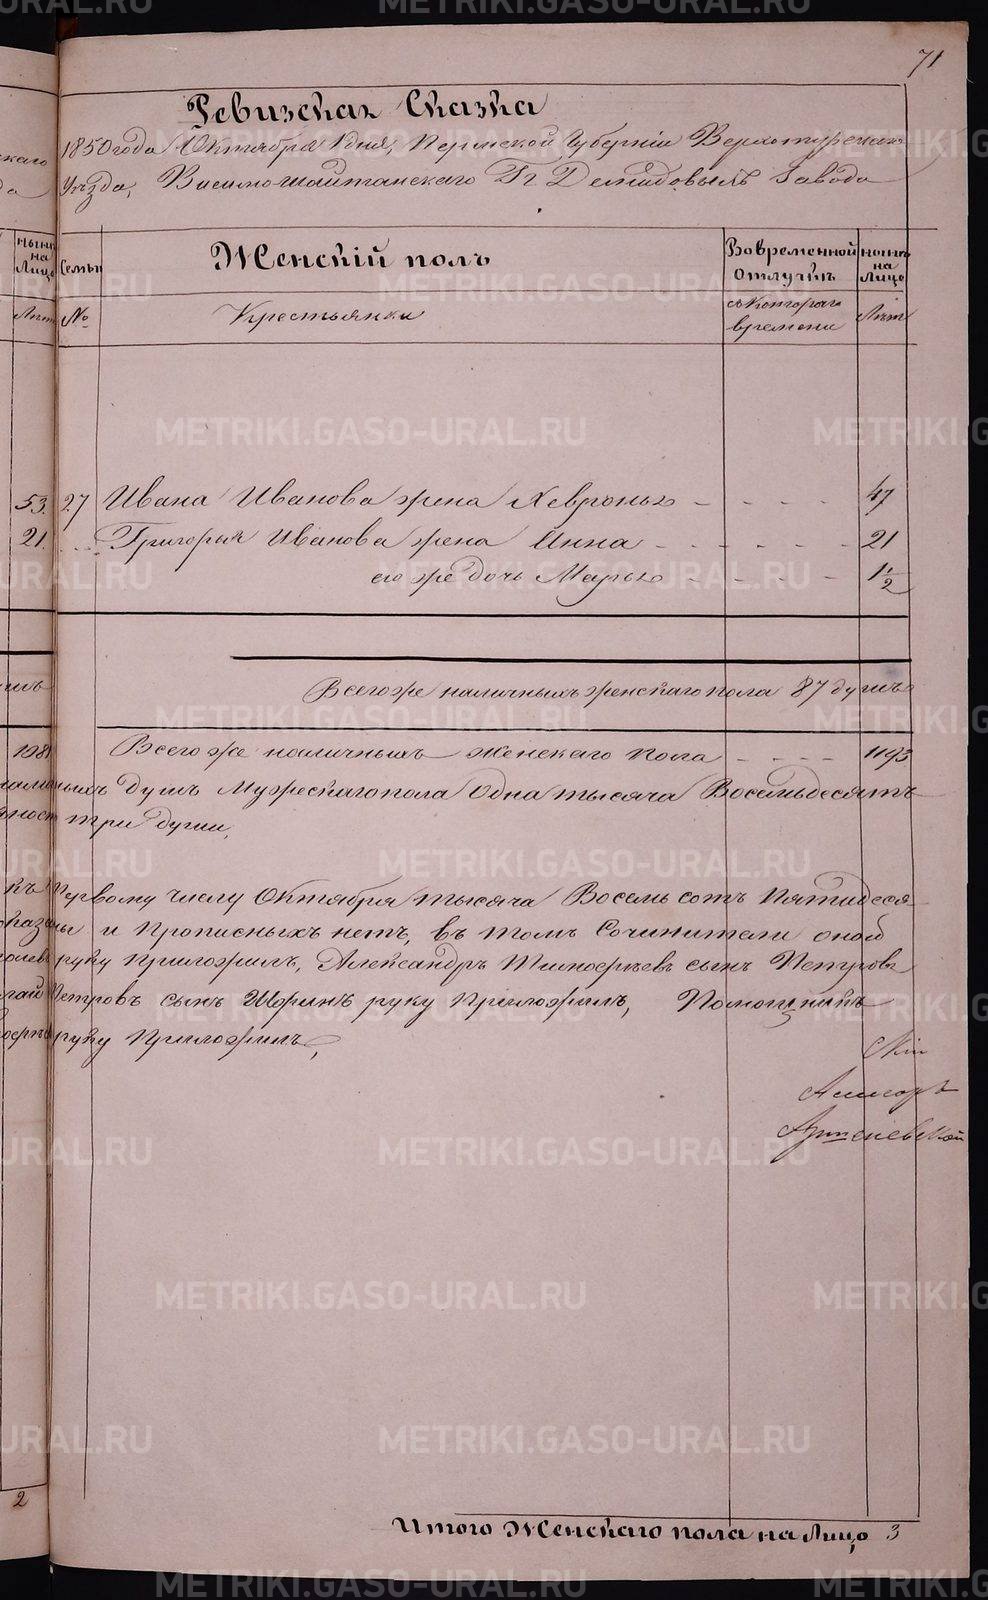 71
Ревизская Сказка
1850 года Октября 1 дня, Пермской Губерніи Верхотурскаго
Уѣзда, Висимошайтанскаго Гг Демидовыхъ Завода
нынѣ на Лицо
Семьи
Женскій полъ
Во временной отлучкѣ
нынѣ на Лицо
Лѣт
№
Крестьянки
съ Котораго времени
Лѣт
53. 27 Ивана Иванова жена Хевронья - - - - 47
21. Григорья Иванова жена Анна - - - - - 21
его же дочь Марья - - - - 1 1/2
Всего же наличныхъ женскаго пола 87 душъ
108 Всего же наличныхъ женскаго пола - - - - 1193
душъ Мужескаго пола Одна тысяча Восемьдесятъ
три души,
къ Первому числу Октября тысяча Восемь сотъ Пятидеся
и Прописныхъ нетъ, въ томъ Сочинители оной
руку приложилъ, Александръ Тимофѣевъ сынъ Петровъ
Петровъ сынъ руку Приложилъ, Помощникъ
руку Приложилъ,
2
Итого Женскаго пола на Лицо 3
METRIKI.GASO-URAL.RU